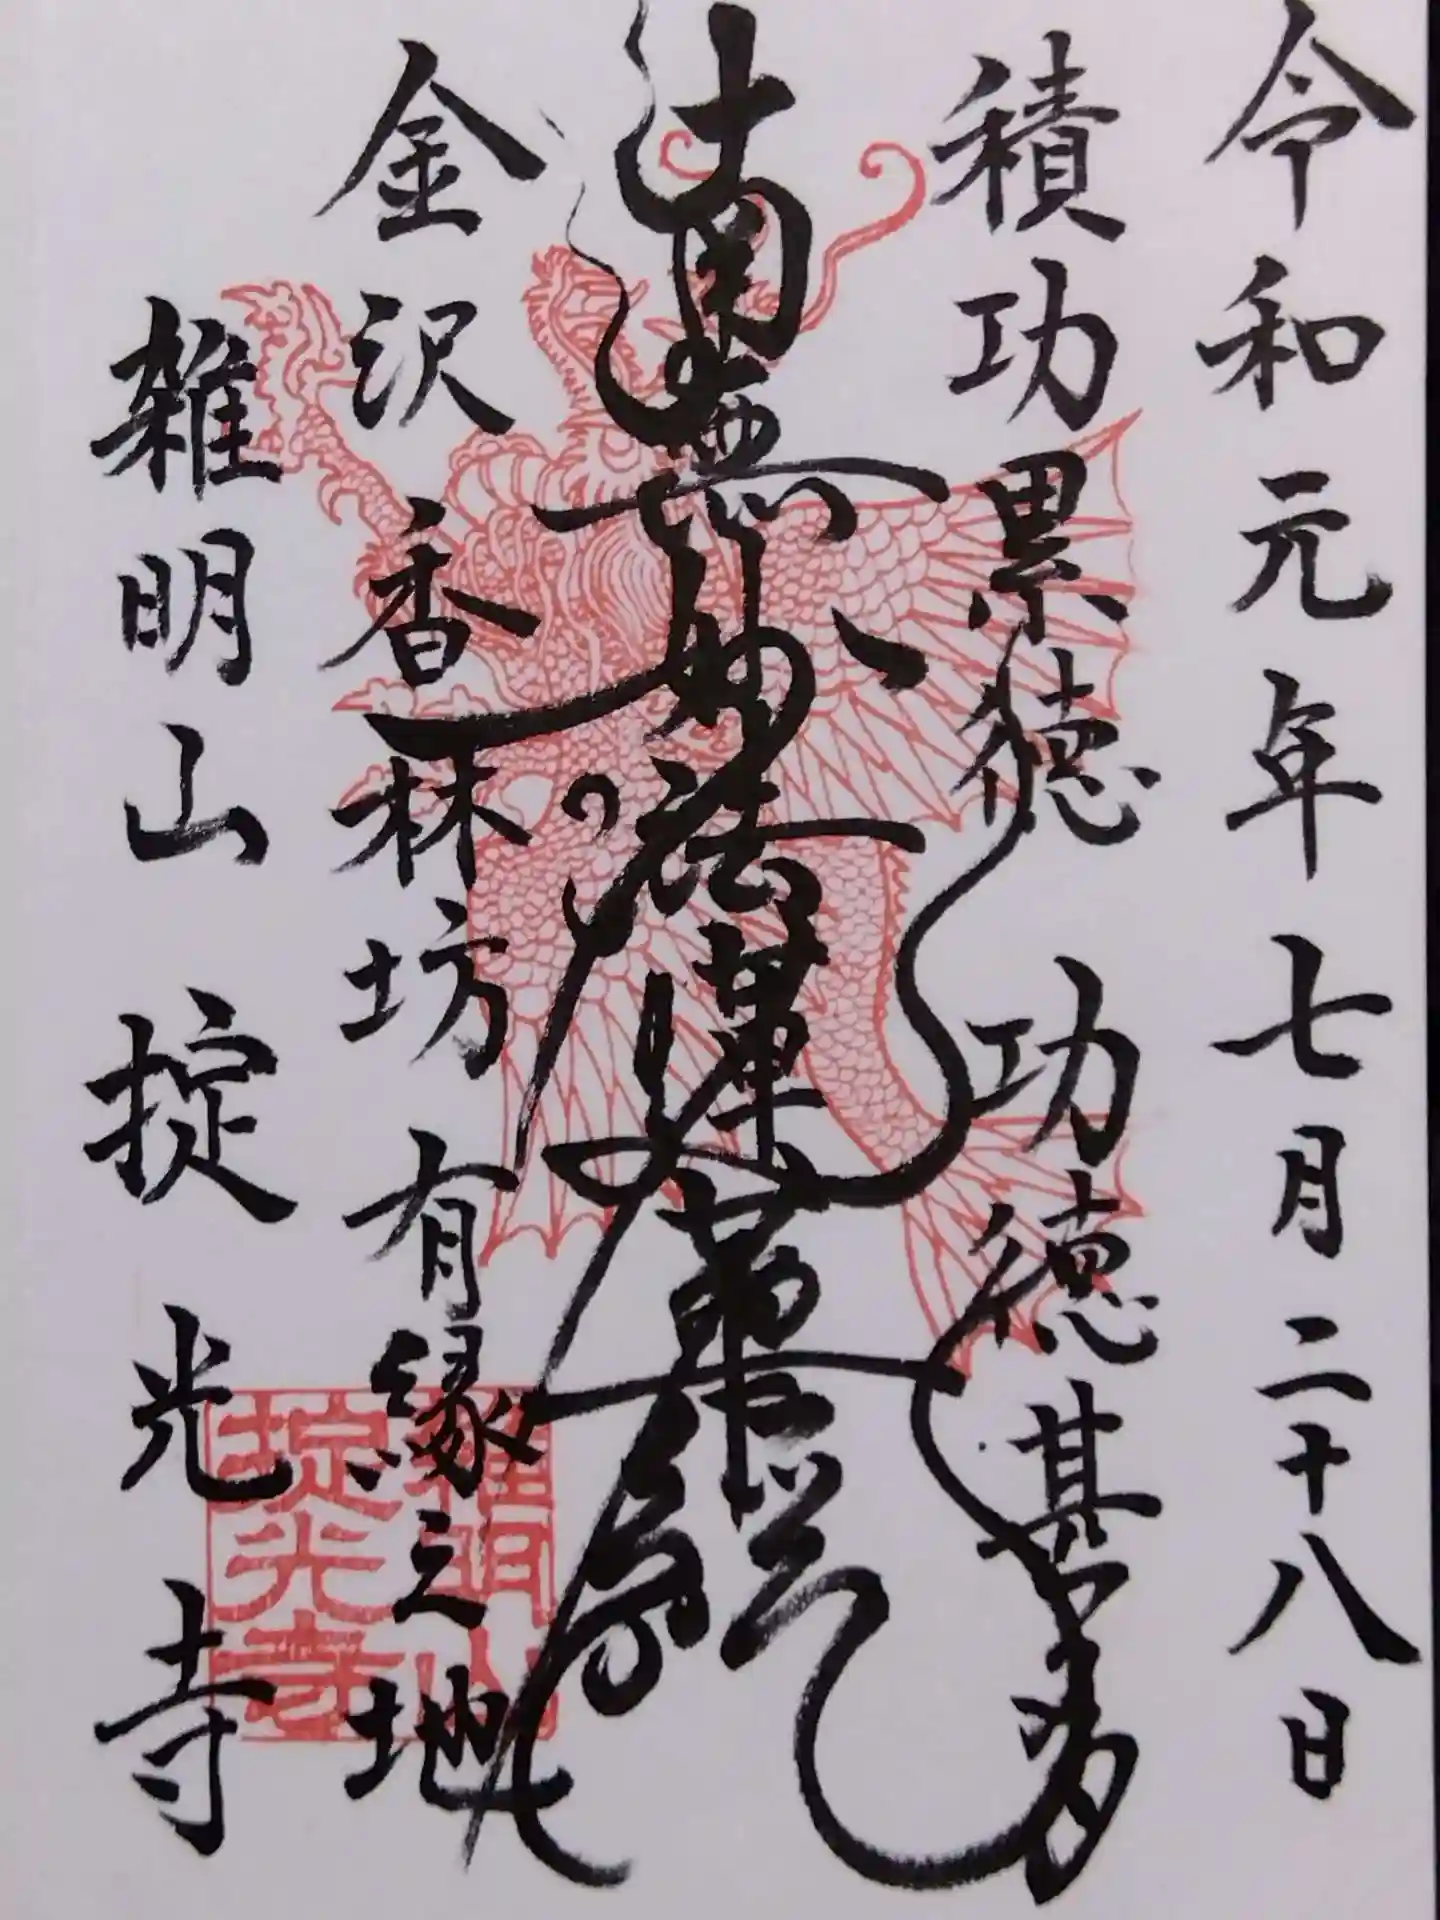 令和元年七月二十八日
積功累徳 功徳甚多
南無妙法蓮華経
金沢 香林坊 有縁之地
雑明山 掟光寺
雑明山
掟光寺